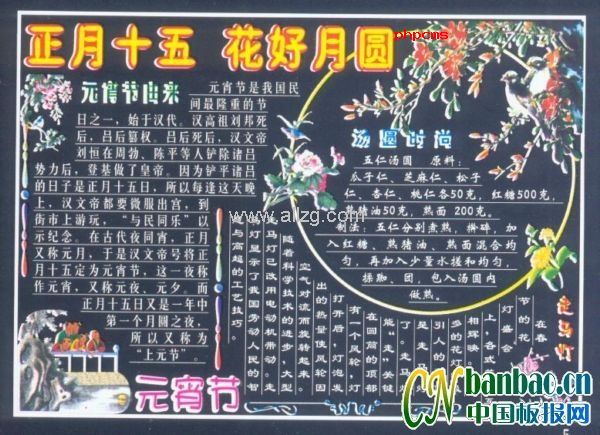 正月十五 花好月圆
phpcms
元宵节由来
元宵节是我国民
间最隆重的节
日之一，始于汉代。汉高祖刘邦死
后，吕后篡权。吕后死后，汉文帝
刘恒在周勃、陈平等人铲除诸吕
势力后，登基做了皇帝。因为铲平诸吕
的日子是正月十五日，所以每逢这天晚
上，汉文帝都要微服出宫，到
街市上游玩，“与民同乐”以
示纪念。在古代夜同宵，正月
又称元月，于是汉文帝号将正
月十五定为元宵节，这一夜称
作元宵，又称元夜、元夕。而
正月十五日又是一年中
第一个月圆之夜，
所以又称为
“上元节”。
元宵节
汤圆时尚
五仁汤圆 原料：
瓜子仁、芝麻仁、松子
仁、杏仁、桃仁各50克，红糖500克，
熟猪油50克，熟面 200克。
制法：五仁分别煮熟，擀碎，加
入红糖、熟猪油、熟面混合均
匀，再加入少量水搓和均匀，
揉捣、团，包入汤圆内
做熟。
走马灯
在春
节的花
灯盛会
上，各式
相辉
多的花
引人的
是走马
了。走马灯
能“走”关键
在回筒的顶部
有一个风轮，灯
打开后，灯泡发
出的热量使风轮因
空气对流而旋转起来。
随着科学技术的进步，大型
马灯已改用电动机带动。走
灯显示了我国劳动人民的智
与高超的工艺技巧。
www.allzg.com
banbao.cn
中国板报网
5